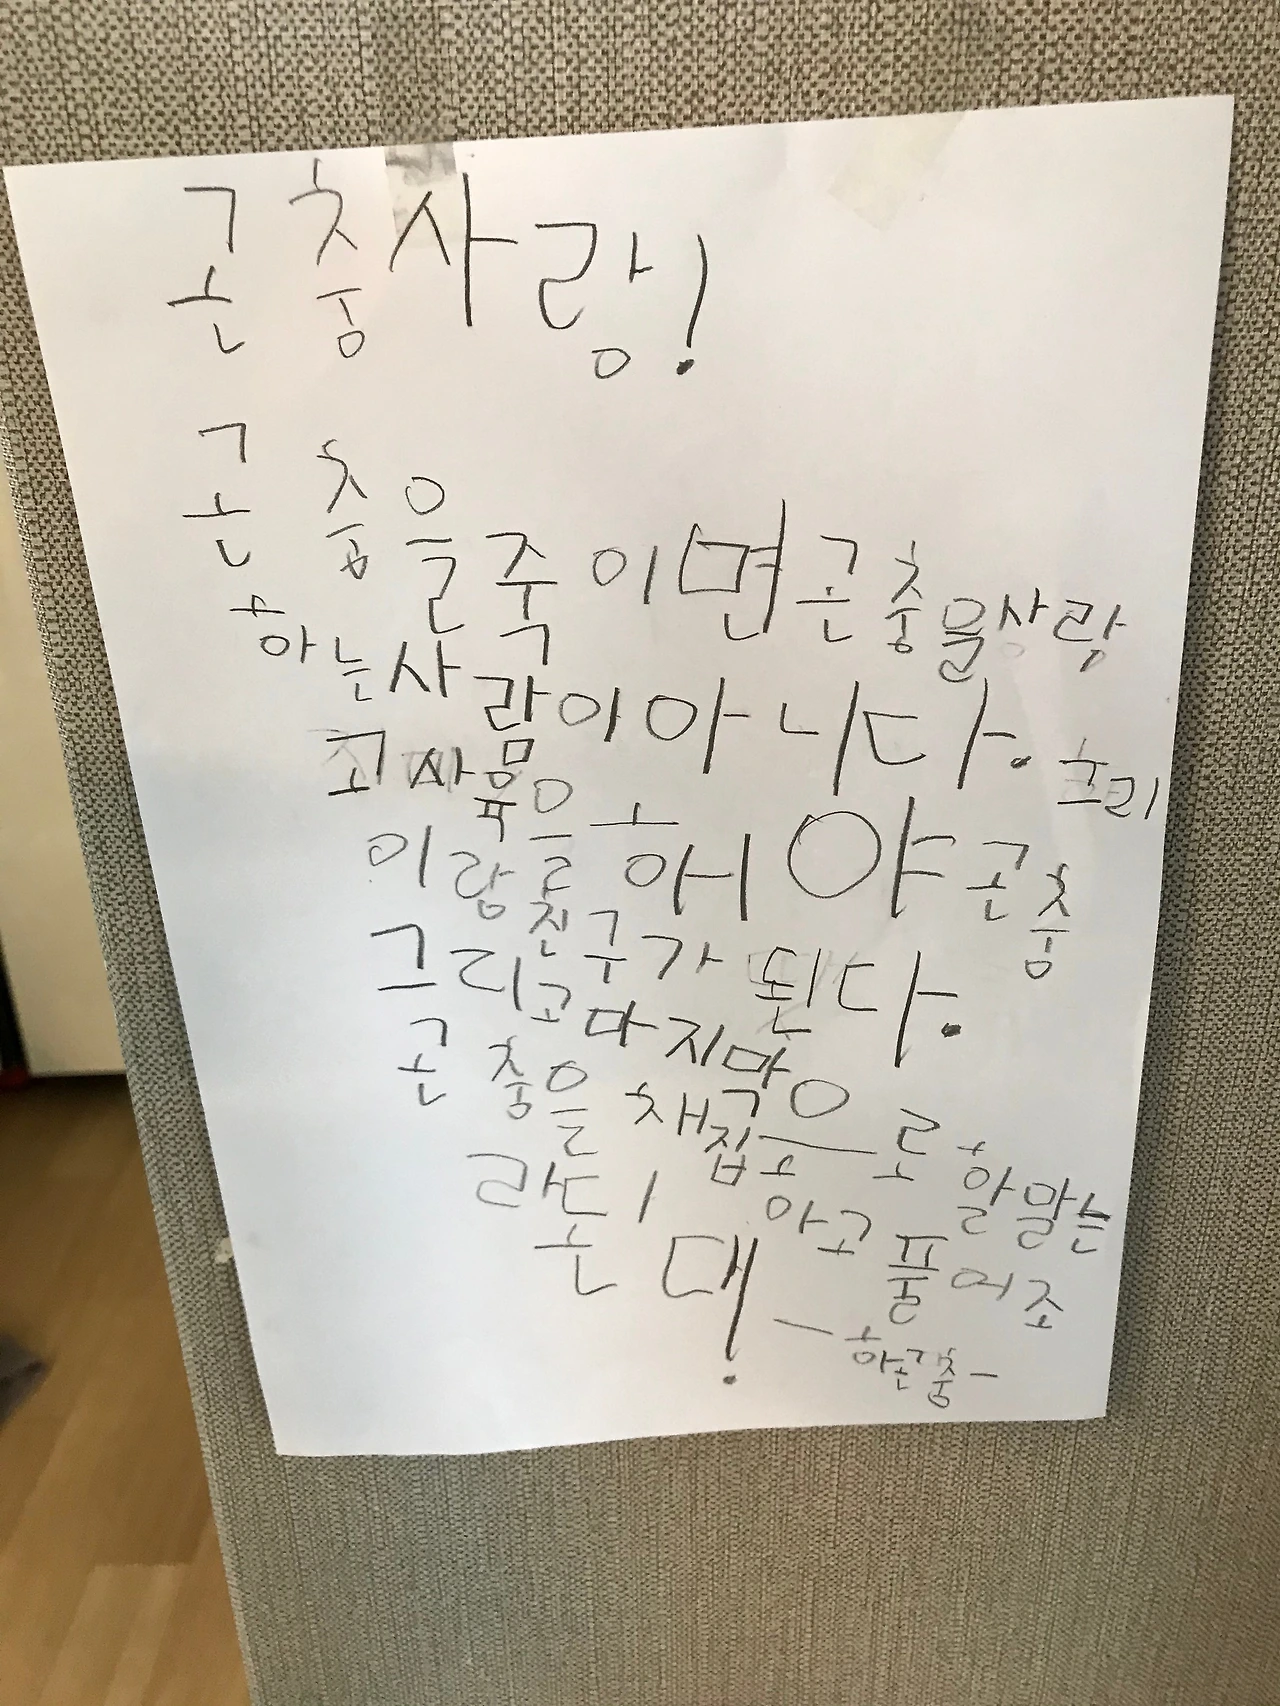 곤충사랑!
곤충을죽이면곤충을사랑
하는사람이아니다. 그리
고싸움을하해야곤충
이랑친구가된다.
그리고마지막으로할말는
곤충을채집하고풀어조
라돈대!